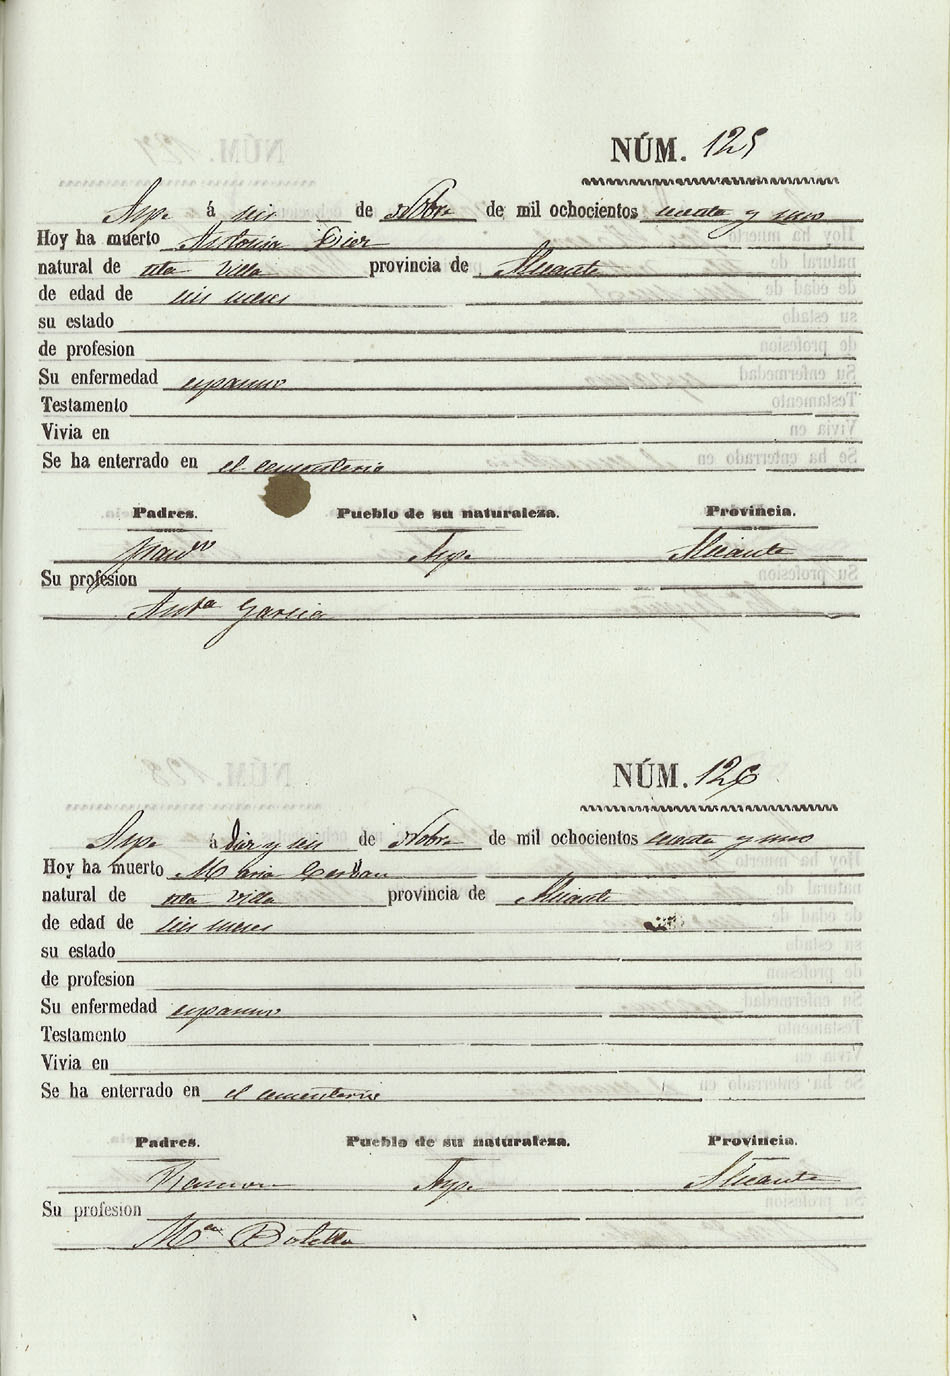 NÚM. 125
Aspe á seis de Nobre de mil ochocientos cuarenta y uno
Hoy ha muerto Antonia
natural de esta Villa provincia de Alicante
de edad de seis meses
su estado
de profesion
Su enfermedad espasmo
Testamento
Vivia en
Se ha enterrado en el cementerio
Padres. Pueblo de su naturaleza. Provincia.
Aspe Alicante
Su profesion
Anta Garcia
NÚM. 126
Aspe á diez y seis de Nobre de mil ochocientos cuarenta y uno
Hoy ha muerto Maria
natural de esta Villa provincia de Alicante
de edad de seis meses
su estado
de profesion
Su enfermedad espasmo
Testamento
Vivia en
Se ha enterrado en el cementerio
Padres. Pueblo de su naturaleza. Provincia.
Ramon Aspe Alicante
Su profesion
Ma Botella